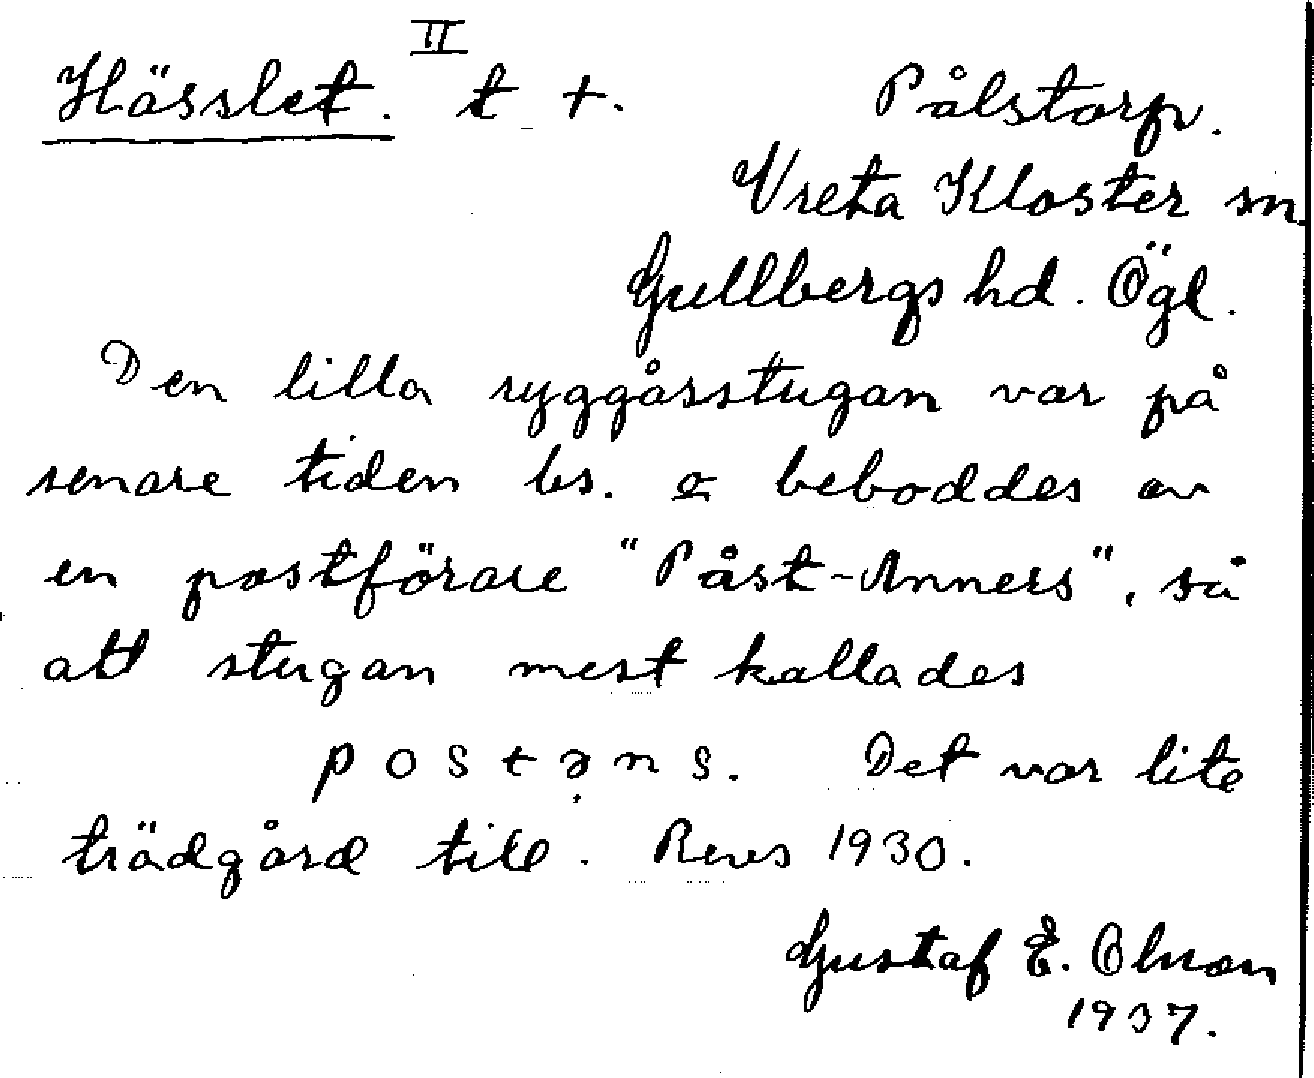 II
Hässlet. t +. Pålstorp.
Vreta Kloster sn.
Gullbergs hd. Ögl.
Den lilla ryggåsstugan var på
senare tiden bs. o beboddes av
en postförare "Påst-Anners", så
att stugan mest kallades
postəns. Det var lite
trädgård till. Revs 1930.
Gustaf E. Olsson
1937.